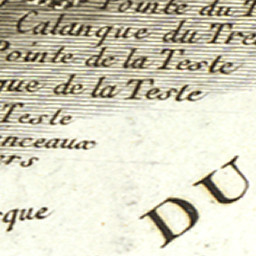 Pointe du
Calanque du Tre
Pointe de la Teste
que de la Teste
Teste
nceaux
ers
rque
DU